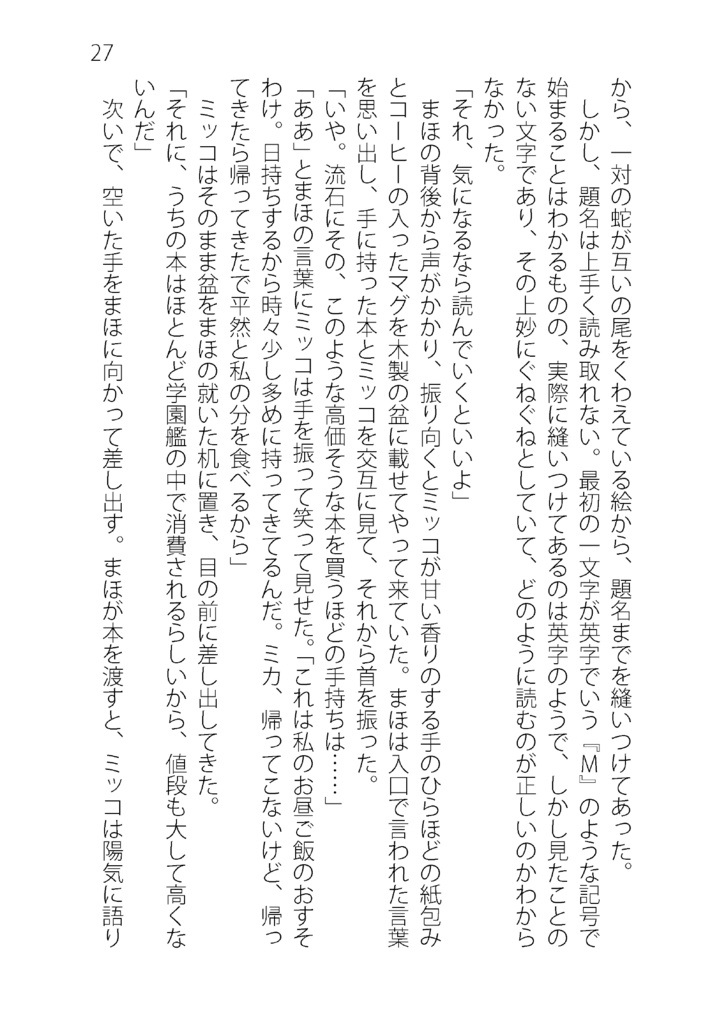 27
から、一対の蛇が互いの尾をくわえている絵から、題名までを縫いつけてあった。
しかし、題名は上手く読み取れない。最初の一文字が英字でいう『M』のような記号で
始まることはわかるものの、実際に縫いつけてあるのは英字のようで、しかし見たことの
ない文字であり、その上妙にぐねぐねとしていて、どのように読むのが正しいのかわから
なかった。
「それ、気になるなら読んでいくといいよ」
まほの背後から声がかかり、振り向くとミッコが甘い香りのする手のひらほどの紙包み
とコーヒーの入ったマグを木製の盆に載せてやって来ていた。まほは入口で言われた言葉
を思い出し、手に持った本とミッコを交互に見て、それから首を振った。
「いや。流石にその、このような高価そうな本を買うほどの手持ちは……」
「ああ」とまほの言葉にミッコは手を振って笑って見せた。「これは私のお昼ご飯のおすそ
わけ。日持ちするから時々少し多めに持ってきてるんだ。ミカ、帰ってこないけど、帰っ
てきたら帰ってきたで平然と私の分を食べるから」
ミッコはそのまま盆をまほの就いた机に置き、目の前に差し出してきた。
「それに、うちの本はほとんど学園艦の中で消費されるらしいから、値段も大して高くな
いんだ」
次いで、空いた手をまほに向かって差し出す。まほが本を渡すと、ミッコは陽気に語り